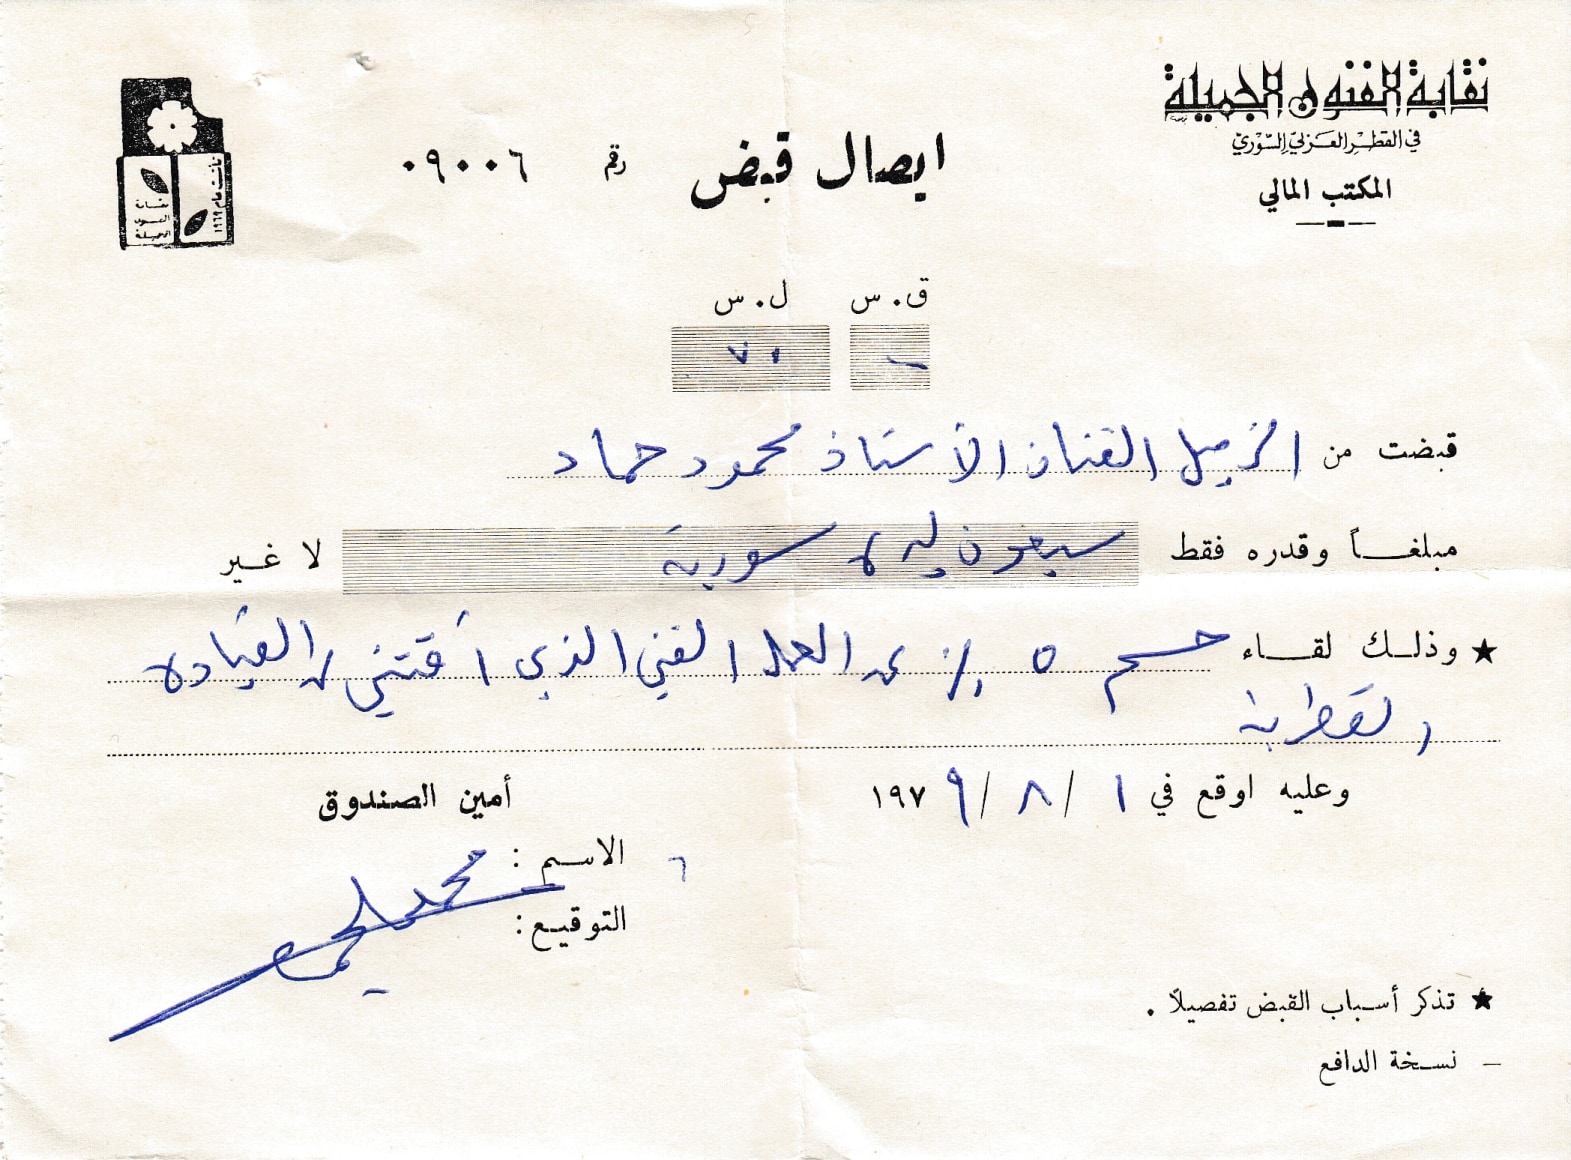 نقابة الفنون الجميلة
في القطر العربي السوري
المكتب المالي
ايصال قبض رقم ٠٩٠٠٦
تأسست عام ١٩٦٩
نقابة
الفنون
الجميلة
ق.س ل.س
- ٧٠
قبضت من الزميل الفنان الأستاذ محمود حماد
مبلغاً وقدره فقط سبعون ليرة سورية لا غير
★ وذلك لقاء حسم ٥٪ من العمل الفني الذي أقتني من القيادة
القطرية
وعليه اوقع في ١ / ٨ / ١٩٧٩
أمين الصندوق
الاسم : محمد
التوقيع :
★ تذكر أسباب القبض تفصيلاً .
- نسخة الدافع